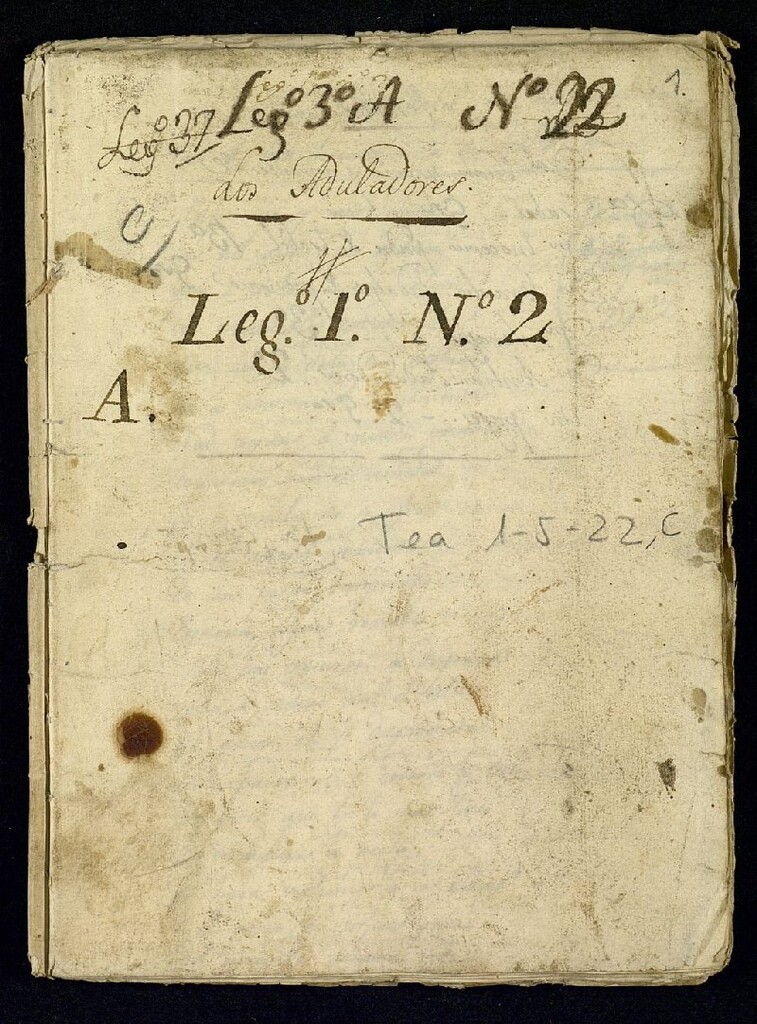 Leg.º 3º A Nº 22 1.
Leg.º 37
Los Aduladores.
Leg.º 1.º N.º 2
A.
Tea 1-5-22, C